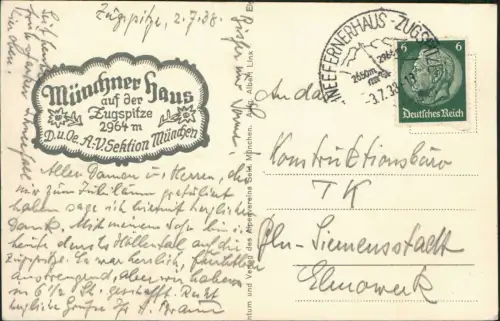 Zugspitze, 2.7.38.
Münchner Haus
auf der
Zugspitze
2964 m
D.u.Oe.A.-V. Sektion München
Allen Damen u. Herren, die
mir zum Jubiläum gratuliert
haben sage ich hiermit herzlichen
Dank. Mit meinem
heute durchs Höllental auf die
Zugspitze. Es war herrlich,
anstrengend, aber wir haben es
in 6 1/2 St. geschafft. Recht
herzliche Grüße Ihr A. Braun
SCHNEEFERNERHAUS - ZUGSPITZE
2650m
2964
3.7.38
6
6
Deutsches Reich
An das
Konstruktionsbüro
TK
Bln-Siemensstadt
Elmowerk